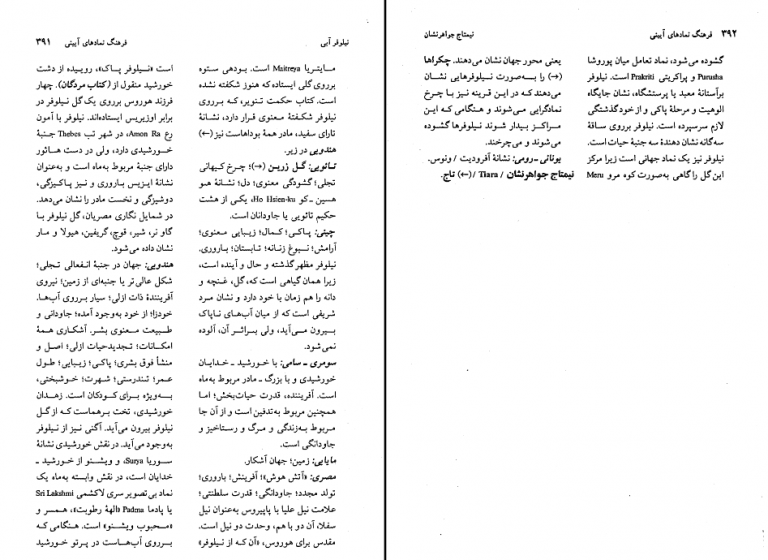 نیلوفر آبی
فرهنگ نمادهای آیینی ۳۹۱
مایتریا Maitreya است. بودهی ستوه
برروی گلی ایستاده که هنوز شکفته نشده
است. کتاب حکمت تنویر، که برروی
نیلوفر شکفتهٔ معنوی قرار دارد، نشانهٔ
تارای سفید، مادر همهٔ بوداهاست نیز (←)
هندویی در زیر.
تائویی: گل زرین (→)؛ چرخ کیهانی
تجلی؛ گشودگی معنوی؛ دل؛ نشانهٔ هو
هسین ـ کو Ho Hsien-ku، یکی از هشت
حکیم تائویی یا جاودانان است.
چینی: پاکی؛ کمال؛ زیبایی معنوی؛
آرامش؛ نبوغ زنانه؛ تابستان؛ باروری.
نیلوفر مظهر گذشته و حال و آینده است،
زیرا همان گیاهی است که، گل، غنچه و
دانه را هم زمان با خود دارد و نشان مرد
شریفی است که از میان آب‌های ناپاک
بیرون می‌آید، ولی براثر آن، آلوده
نمی‌شود.
سومری ـ سامی: با خورشید ـ خدایان
خورشیدی و با بزرگ ـ مادر مربوط به‌ماه
است. آفریننده، قدرت حیات‌بخش؛ اما
همچنین مربوط به‌تدفین است و از آن جا
مربوط به‌زندگی و مرگ و رستاخیز و
جاودانگی است.
مایایی: زمین؛ جهان آشکار.
مصری: «آتش هوش»؛ آفرینش؛ باروری؛
تولد مجدد؛ جاودانگی؛ قدرت سلطنتی؛
علامت نیل علیا با پاپیروس به‌عنوان نیل
سفلا، آن دو با هم، وحدت دو نیل است.
مقدس برای هوروس، «آن که از نیلوفر»
است «نیلوفر پاک»، روییده از دشت
خورشید منقول از (کتاب مردگان). چهار
فرزند هوروس برروی یک گل نیلوفر در
برابر اوزیریس ایستاده‌اند. نیلوفر با آمون
رع Amon Ra، در شهر تب Thebes جنبهٔ
خورشیدی دارد، ولی در دست هاثور
دارای جنبهٔ مربوط به‌ماه است و به‌عنوان
نشانهٔ ایزیس باروری و نیز پاکیزگی،
دوشیزگی و نخست مادر را نشان می‌دهد.
در شمایل نگاری مصریان، گل نیلوفر با
گاو نر، شیر، قوچ، گریفین، هیولا و مار
نشان داده می‌شود.
هندویی: جهان در جنبهٔ انفعالی تجلی؛
شکل عالی‌تر یا جنبه‌ای از زمین؛ نیروی
آفرینندهٔ ذات ازلی؛ سیار برروی آب‌ها.
خودزا؛ از خود به‌وجود آمده؛ جاودانی و
طبیعت معنوی بشر. آشکاری همهٔ
امکانات؛ تجدیدحیات ازلی؛ اصل و
منشأ فوق بشری؛ پاکی؛ زیبایی؛ طول
عمر؛ تندرستی؛ شهرت؛ خوشبختی،
به‌ویژه برای کودکان است. زهدان
خورشیدی، تخت برهماست که از گل
نیلوفر بیرون می‌آید. آگنی نیز از نیلوفر
به‌وجود می‌آید. در نقش خورشیدی نشانهٔ
سوریا Surya، و ویشنو از خورشید ـ
خدایان است، در نقش وابسته به‌ماه یک
نماد بی‌تصویر سری لاکشمی Sri Lakshmi
یا پادما Padma (الههٔ رطوبت)»، همسر و
«محبوب ویشنو» است. هنگامی که
برروی آب‌هاست در پرتو خورشید
۳۹۲ فرهنگ نمادهای آیینی
نیمتاج جواهرنشان
گشوده می‌شود، نماد تعامل میان پوروشا
Purusha و پراکریتی Prakriti است. نیلوفر
برآستانهٔ معبد یا پرستشگاه، نشان جایگاه
الوهیت و مرحلهٔ پاکی و از خودگذشتگی
لازم سرسپرده است. نیلوفر برروی ساقهٔ
سه‌گانه نشان دهندهٔ سه جنبهٔ حیات است.
نیلوفر نیز یک نماد جهانی است زیرا مرکز
این گل را گاهی به‌صورت کوه مرو Meru
یعنی محور جهان نشان می‌دهند. چکراها
(→) را به‌صورت نیلوفرهایی نشان
می‌دهند که در این قرینه نیز با چرخ
نمادگرایی می‌شوند و هنگامی که این
مراکز بیدار شوند نیلوفرها گشوده
می‌شوند و می‌چرخند.
یونانی ـ رومی: نشانهٔ آفرودیت / ونوس.
نیمتاج جواهرنشان / Tiara / (←) تاج.